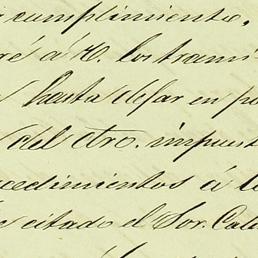 cumplimiento.
ré á V. los trami
hasta dejar en po
del otro. impuest
cedimientos á l
citado el Sor. Cal